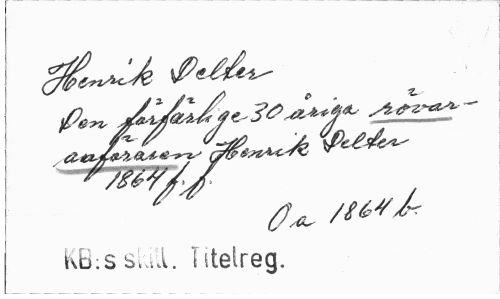 Henrik Delter
Den förfärlige 30 åriga rövar-
anföraren Henrik Delter
1864 f.f.
Oa 1864 b.
KB:s skill. Titelreg.